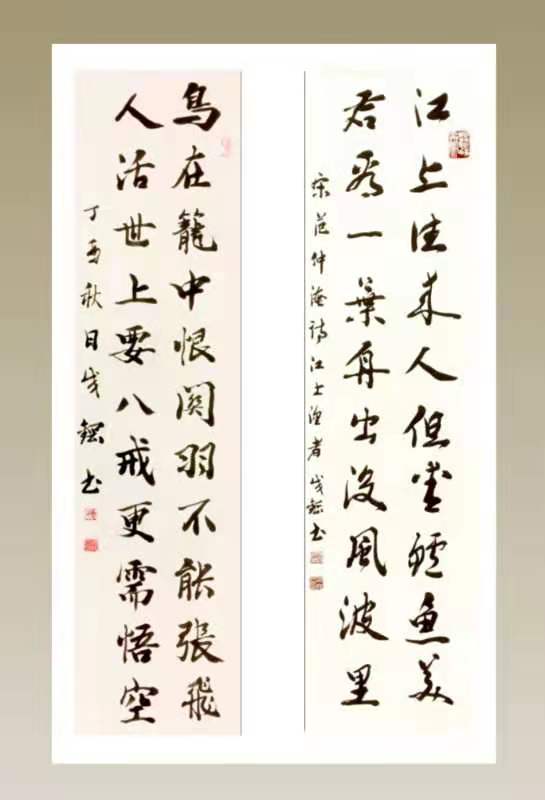 江上往来人但爱鲈鱼美
君看一葉舟出没風波里
宋范仲淹诗江上渔者书
鸟在籠中恨關羽不能張飛
人活世上要八戒更需悟空
丁酉秋日书